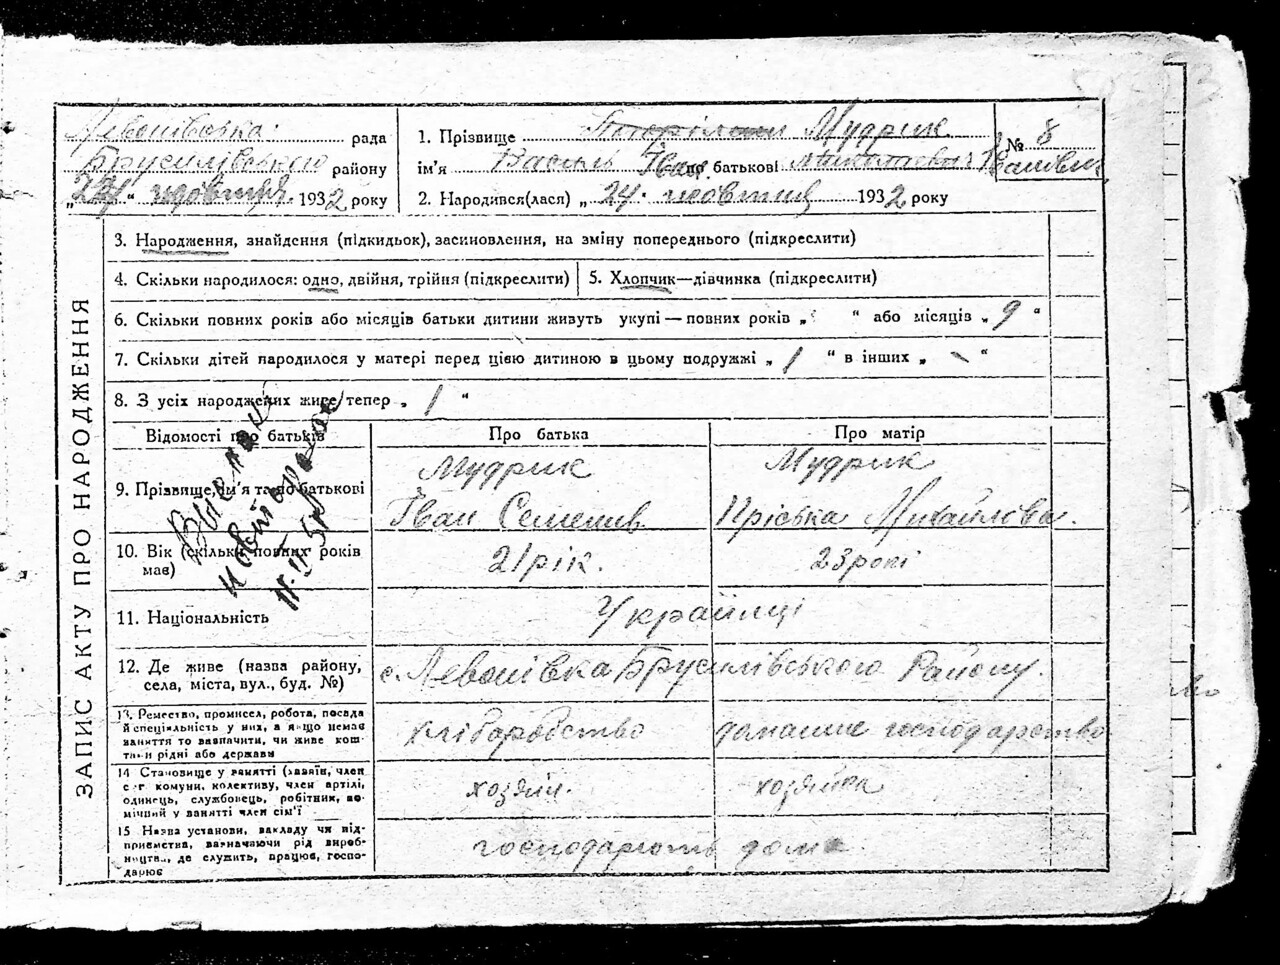 Левонівська рада
Брусилівського району
„24“ жовтня 1932 року
1. Прізвище Мудрик
№ 8
ім'я Василь Іван по батькові Микитович Іванович
2. Народився(лася) „ 24. жовтня 1932 року
ЗАПИС АКТУ ПРО НАРОДЖЕННЯ
3. Народження, знайдення (підкидьок), засиновлення, на зміну попереднього (підкреслити)
4. Скільки народилося: одно, двійня, трійня (підкреслити)
5. Хлопчик—дівчинка (підкреслити)
6. Скільки повних років або місяців батьки дитини живуть укупі — повних років „ “ або місяців „ 9 “
7. Скільки дітей народилося у матері перед цією дитиною в цьому подружжі „ 1 “ в інших „ \ “
8. З усіх народжених живе тепер „ 1 “
Відомості про батьків
Про батька
Про матір
9. Прізвище, ім'я та по батькові
Мудрик
Іван Семенів
Мудрик
Пріська Михайлова.
10. Вік (скільки повних років
має)
21 рік.
23 роки
11. Національність
Українці
12. Де живе (назва району,
села, міста, вул., буд. №)
с. Левонівка Брусилівського Району.
13. Ремество, промисел, робота, посада
й спеціяльність у них, а якщо немає
заняття то зазначити, чи живе кош-
тами рідні або держави
хліборобство
домашнє господарство
14 Становище у занятті (хазяїн, член
с-г комуни, колективу, член артілі,
одинець, службовець, робітник, по-
мічний у занятті член сім'ї
хозяїн.
хозяйка
15 Назва установи, закладу чи під-
приємства, зазначаючи рід вироб-
ництва, де служить, працює, госпо-
дарює
господарюють дома